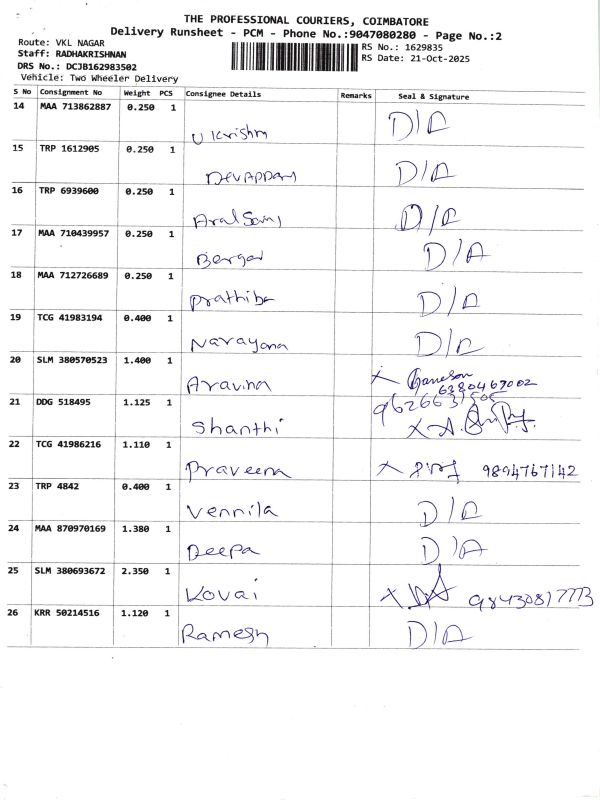 THE PROFESSIONAL COURIERS, COIMBATORE
Delivery Runsheet - PCM - Phone No.:9047080280 - Page No.:2
Route: VKL NAGAR
RS No.: 1629835
Staff: RADHAKRISHNAN
RS Date: 21-Oct-2025
DRS No.: DCJB162983502
Vehicle: Two Wheeler Delivery
S No Consignment No Weight PCS Consignee Details Remarks Seal & Signature
14 MAA 713862887 0.250 1
U Krishn D/A
15 TRP 1612905 0.250 1
Devappan D/A
16 TRP 6939600 0.250 1
Aral Samy D/A
17 MAA 710439957 0.250 1
D/A
18 MAA 712726689 0.250 1
Prathiba D/A
19 TCG 41983194 0.400 1
Narayana D/A
20 SLM 380570523 1.400 1
Aravinn X Ganesan
6380467002
21 DDG 518495 1.125 1
Shanthi X
22 TCG 41986216 1.110 1
Praveena X 9894767142
23 TRP 4842 0.400 1
Vennila D/A
24 MAA 870970169 1.380 1
Deepa D/A
25 SLM 380693672 2.350 1
Kovai X
26 KRR 50214516 1.120 1
Ramesh D/A